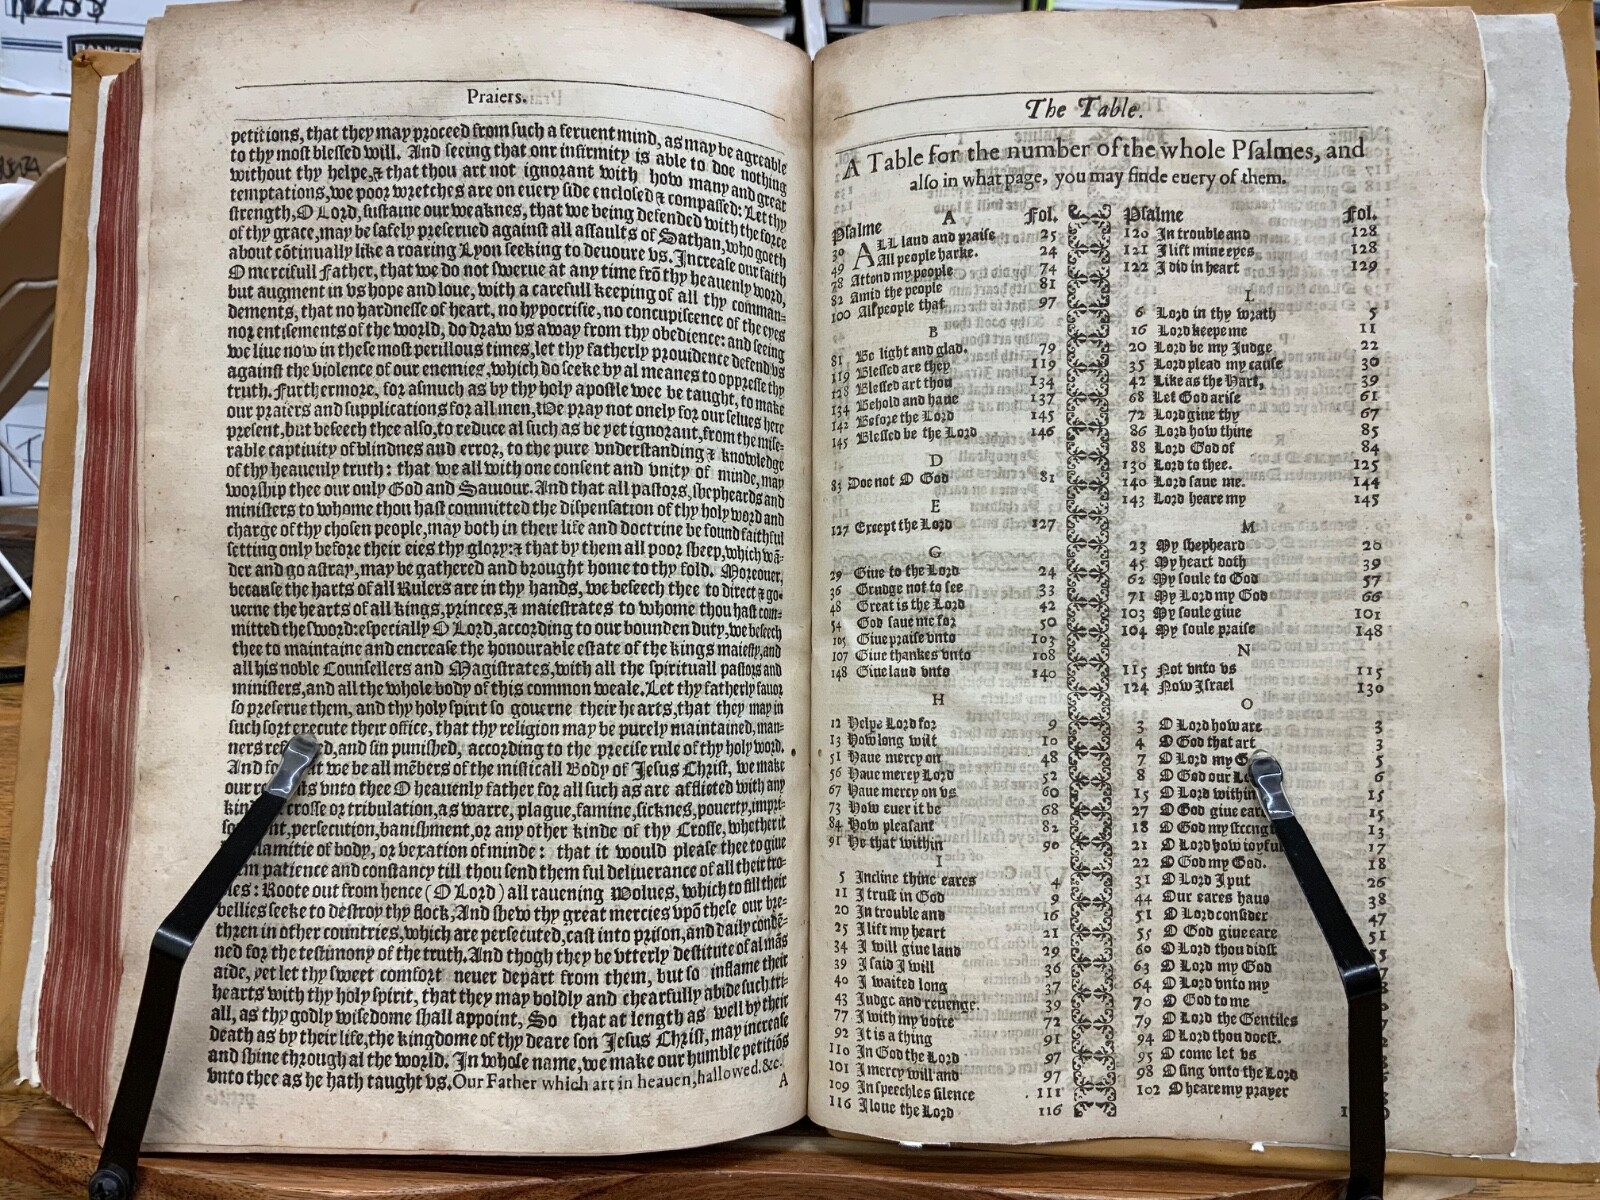 Praiers.
petitions, that they may proceed from such a feruent mind, as may be agreeable
to thy most blessed will. And seeing that our infirmity is able to doe nothing
without thy helpe,& that thou art not ignorant with how many and great
temptations, we poor wretches are on euery side enclosed & compassed: Let thy
strength, O Lord, sustaine our weaknes, that we being defended with the force
of thy grace, may be safely preserued against all assaults of Sathan, who goeth
about cōtinually like a roaring Lyon seeking to deuoure vs. Increase our faith
O mercifull Father, that we do not swerue at any time frō thy heauenly word,
but augment in vs hope and loue, with a carefull keeping of all thy comman-
dements, that no hardnesse of heart, no hypocrisie, no concupiscence of the eyes
nor entisements of the world, do draw vs away from thy obedience: and seeing
we liue now in these most perillous times, let thy fatherly prouidence defend vs
against the violence of our enemies, which do seeke by al meanes to oppresse thy
truth. Furthermore, for asmuch as by thy holy apostle wee be taught, to make
our praiers and supplications for all men, We pray not onely for our selues here
present, but beseech thee also, to reduce al such as be yet ignorant, from the mise-
rable captinity of blindnes and error, to the pure vnderstanding & knowledge
of thy heauenly truth: that we all with one consent and vnity of minde, may
worship thee our only God and Sauiour. And that all pastors, shepheards and
ministers to whome thou hast committed the dispensation of thy holy word and
charge of thy chosen people, may both in their life and doctrine be found faithful
setting only before their eies thy glory:& that by them all poor sheep, which wā-
der and go astray, may be gathered and brought home to thy fold. Moreouer,
because the harts of all Rulers are in thy hands, we beseech thee to direct & go-
uerne the hearts of all kings, princes,& maiestrates to whome thou hast com-
mitted the sword: especially O Lord, according to our bounden duty, we beseech
thee to maintaine and encrease the honourable estate of the kings maiesty, and
all his noble Counsellers and Magistrates, with all the spirituall pastors and
ministers, and all the whole body of this common weale. Let thy fatherly fauor
so preserue them, and thy holy spirit so gouerne their hearts, that they may in
such sort execute their office, that thy religion may be purely maintained, man-
ners and sin punished, according to the precise rule of thy holy word.
And we be all mēbers of the misticall Body of Jesus Christ, we make
our vnto thee O heauenly father for all such as are afflicted with any
crosse or tribulation, as warre, plague, famine, sicknes, pouerty, impri-
persecution, banishment, or any other kinde of thy Crosse, whether it
of body, or vexation of minde: that it would please thee to giue
patience and constancy till thou send them ful deliuerance of all their tro-
Roote out from hence (O Lord) all rauening Wolues, which to fill their
bellies seeke to destroy thy flock, And shew thy great mercies vpō these our bre-
thren in other countries, which are persecuted, cast into prison, and daily condē-
ned for the testimony of the truth. And thogh they be vtterly destitute of al mās
aide, yet let thy sweet comfort neuer depart from them, but so inflame their
hearts with thy holy spirit, that they may boldly and chearfully abide such tri-
all, as thy godly wisedome shall appoint, So that at length as well by their
death as by their life, the kingdome of thy deare son Jesus Christ, may increase
and shine through al the world. In whose name, we make our humble petitiōs
vnto thee as he hath taught vs, Our Father which art in heauen, hallowed. &c.
A
The Table.
A Table for the number of the whole Psalmes, and
also in what page, you may finde euery of them.
Psalme A Fol.
30 ALL laud and praise 25
49 All people harke. 24
78 Attend my people 74
82 Amid the people 81
100 All people that 97
B
81 Be light and glad. 79
119 Blessed are they 119
128 Blessed art thou 134
134 Behold and haue 137
142 Before the Lord 145
145 Blessed be the Lord 146
D
83 Doe not O God 81
E
127 Except the Lord 127
G
29 Giue to the Lord 24
36 Grudge not to see 33
48 Great is the Lord 42
54 God saue me for 50
105 Giue praise vnto 103
107 Giue thankes vnto 108
148 Giue laud vnto 140
H
12 Helpe Lord for 9
13 How long wilt 10
51 Haue mercy on 48
56 Haue mercy Lord 52
67 Haue mercy on vs 60
73 How euer it be 68
84 How pleasant 82
91 He that within 90
I
5 Incline thine eares 4
11 I trust in God 9
20 In trouble and 16
25 I lift my heart 21
34 I will giue laud 29
39 I said I will 36
40 I waited long 37
43 Judge and reuenge. 39
77 I with my voice 72
92 It is a thing 91
110 In God the Lord 97
101 I mercy will and 97
109 In speechles silence 111
116 I loue the Lord 116
Psalme Fol.
120 In trouble and 128
121 I lift mine eyes 128
122 I did in heart 129
L
6 Lord in thy wrath 5
16 Lord keepe me 11
20 Lord be my Judge 22
35 Lord plead my cause 30
42 Like as the Hart, 39
68 Let God arise 61
72 Lord giue thy 67
86 Lord how thine 85
88 Lord God of 84
130 Lord to thee. 125
140 Lord saue me. 144
143 Lord heare my 145
M
23 My shepheard 20
45 My heart doth 39
62 My soule to God 57
71 My Lord my God 66
103 My soule giue 101
104 My soule praise 148
N
115 Not vnto vs 115
124 Now Israel 130
O
3 O Lord how are 3
4 O God that art 3
7 O Lord my 5
8 O God our 6
15 O Lord within 15
27 O God giue 15
18 O God my 13
21 O Lord how ioyful 17
22 O God my God. 18
31 O Lord I put 26
44 Our eares haue 38
51 O Lord consider 47
55 O God giue eare 51
60 O Lord thou didst
63 O Lord my God
64 O Lord vnto my
70 O God to me
79 O Lord the Gentiles
94 O Lord thou doest.
95 O come let vs
98 O sing vnto the Lord
102 O heare my prayer